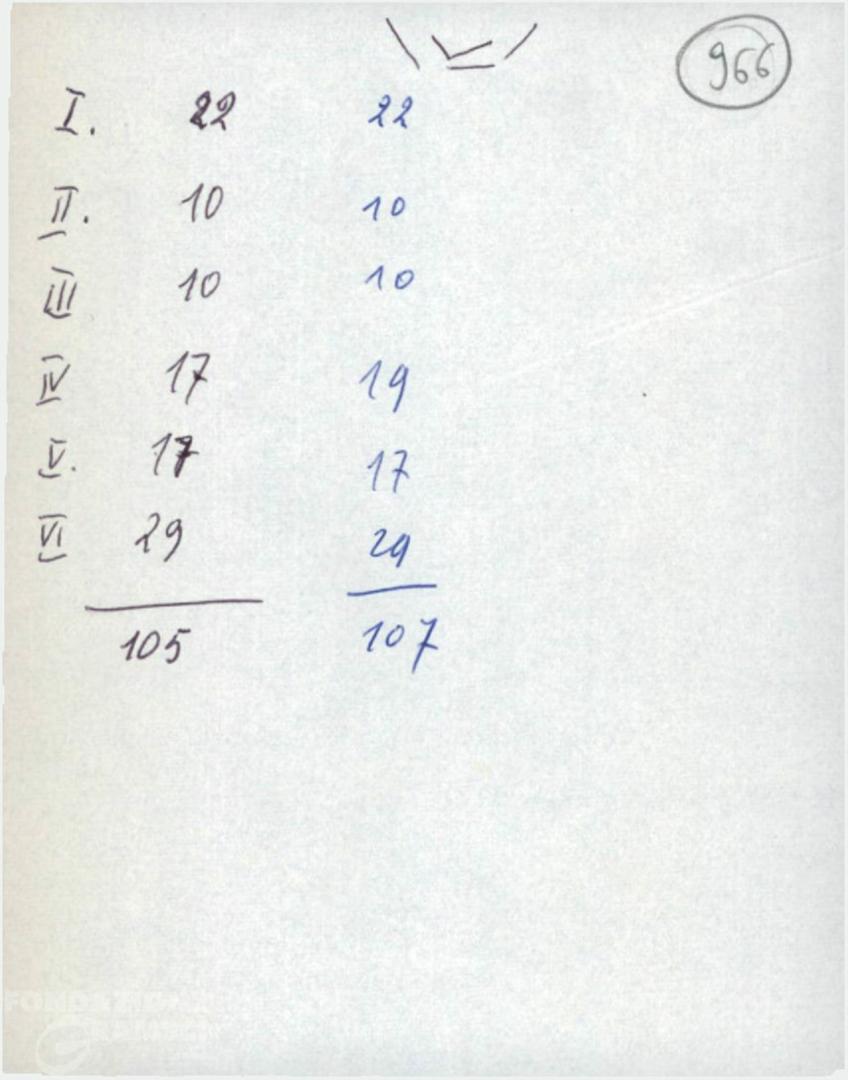 966
I. 22 22
II. 10 10
III 10 10
IV 17 19
V. 17 17
VI 29 29
105 107